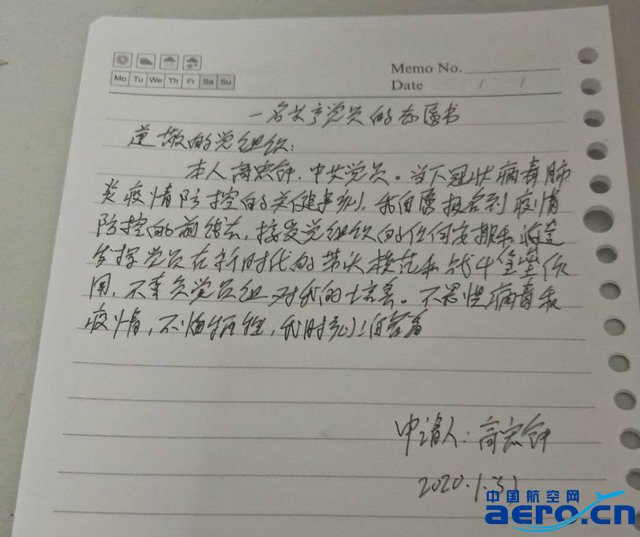 Memo No.
Mo Tu We Th Fr Sa Su
Date / /
一名共产党员的志愿书
尊敬的党组织:
本人高宏钟,中共党员。当下冠状病毒肺
炎疫情防控的关键时刻,我自愿报名到疫情
防控的前线去,接受党组织的任何安排和
发挥党员在新时代的带头模范和战斗堡垒作
用,不辜负党员组对我的培养。不畏惧病毒和
疫情,不怕牺牲,我时刻准备着
申请人:高宏钟
2020.1.31
中国航空网
aero.cn